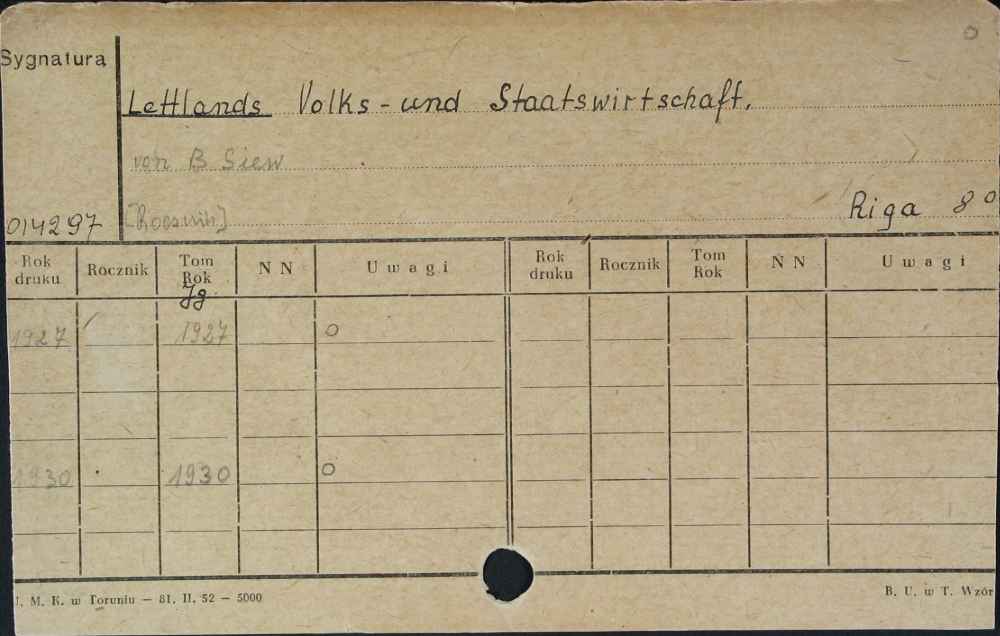 Sygnatura
Lettlands Volks-und Staatswirtschaft.
von B Siew
014297
Riga 8°
Rok druku Rocznik Tom Rok N N Uwagi Rok druku Rocznik Tom Rok N N Uwagi
Jg
1927 1927 o
1930 1930 o
J. M. K. w Toruniu — 81. II. 52 — 5000
B. U. w T. Wzór